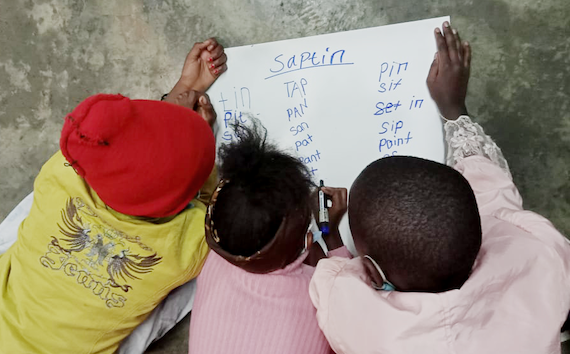 Saptin
tin
Pit
TAP
PAN
son
pat
pant
pin
sit
set in
sip
point